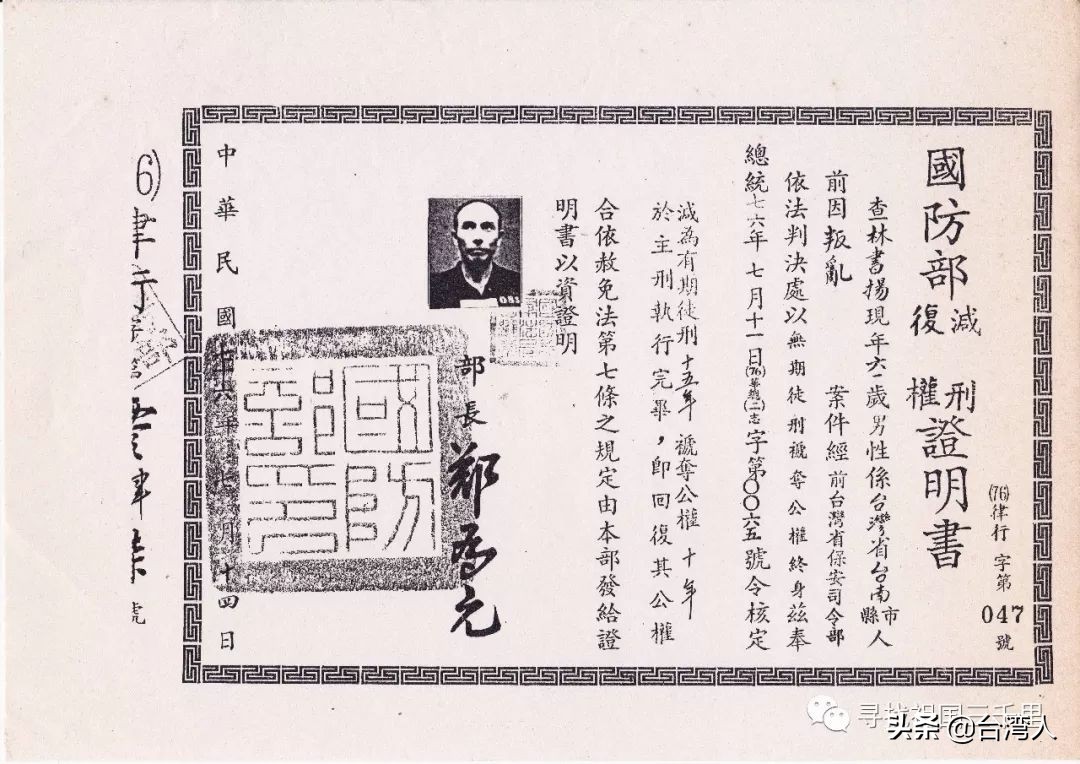 (76)律行 字第047號
國防部減刑復權證明書
查林書揚現年六一歲男性係台灣省台南縣市人
前因叛亂 案件經前台灣省保安司令部
依法判決處以無期徒刑褫奪公權終身茲奉
總統七六年七月十一日(76)華總(二)志字第〇〇六五號令核定
減為有期徒刑十五年褫奪公權十年
於主刑執行完畢,即回復其公權
合依赦免法第七條之規定由本部發給證
明書以資證明
081
部長鄭為元
國防部印
中華民國七十六年七月十四日
号找祖国三千里
头条 @台湾人